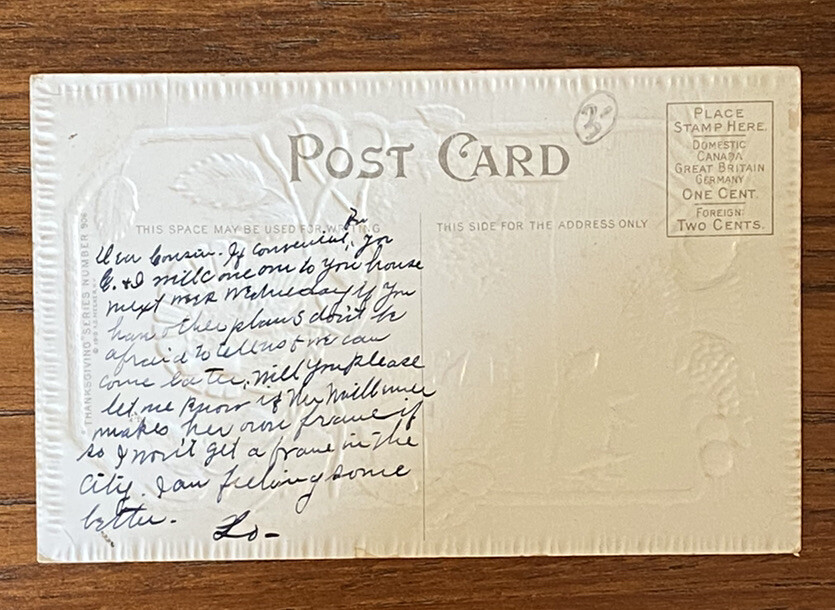 POST CARD
3-
PLACE
STAMP HERE.
DOMESTIC
CANADA
GREAT BRITAIN
GERMANY
ONE CENT.
FOREIGN:
TWO CENTS.
THIS SPACE MAY BE USED FOR WRITING
THIS SIDE FOR THE ADDRESS ONLY
THANKSGIVING SERIES NUMBER 906
Dear Cousin. If convenient, for you
G. & I will come on to you house
next week Wednesday If you
have other plans don't be
afraid to tell us & we can
come later, Will you please
let me know if the Milliner
makes her own frame if
so I won't get a frame in the
City. I am feeling some
better.
Lo-